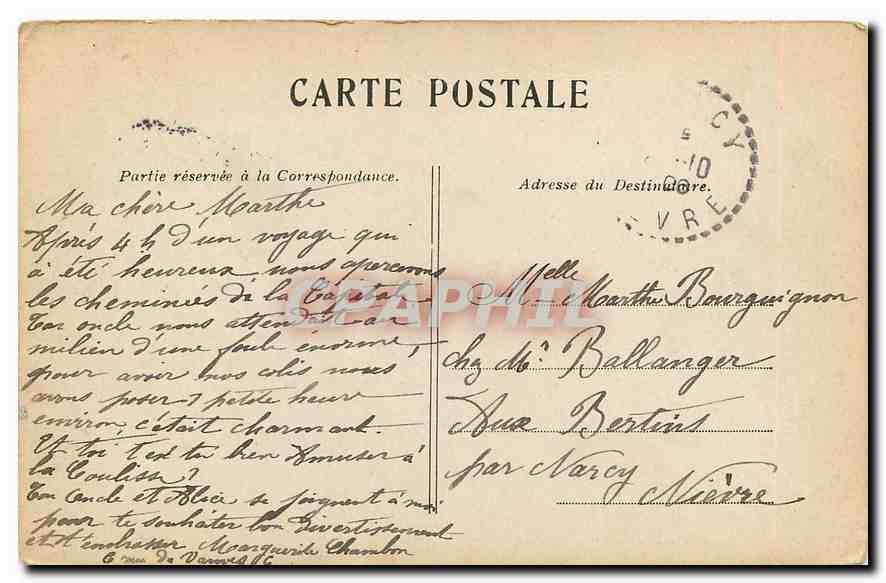 CARTE POSTALE
Partie réservée à la Correspondance.
Ma chère Marthe
Après 4 h d'un voyage qui
à été heureux nous apercevons
les cheminées de la Capitale
Ton oncle nous attendait au
milieu d'une foule enorme,
pour avoir nos colis nous
avons poser 1 petite heure
environ, c'était charmant.
Et toi t'es tu bien Amuser à
la Coulisse ?
Ton Oncle et Alice se joignent à moi
pour te souhâter bon divertissement
et t'embrasser Marguerite Chambon
6 rue de Vanves
Adresse du Destinataire.
Melle Marthe Bourguignon
chez Mr Ballanger
Aux Bertins
par Narcy
Nièvre
CY
10
VRE
CPAPHIL